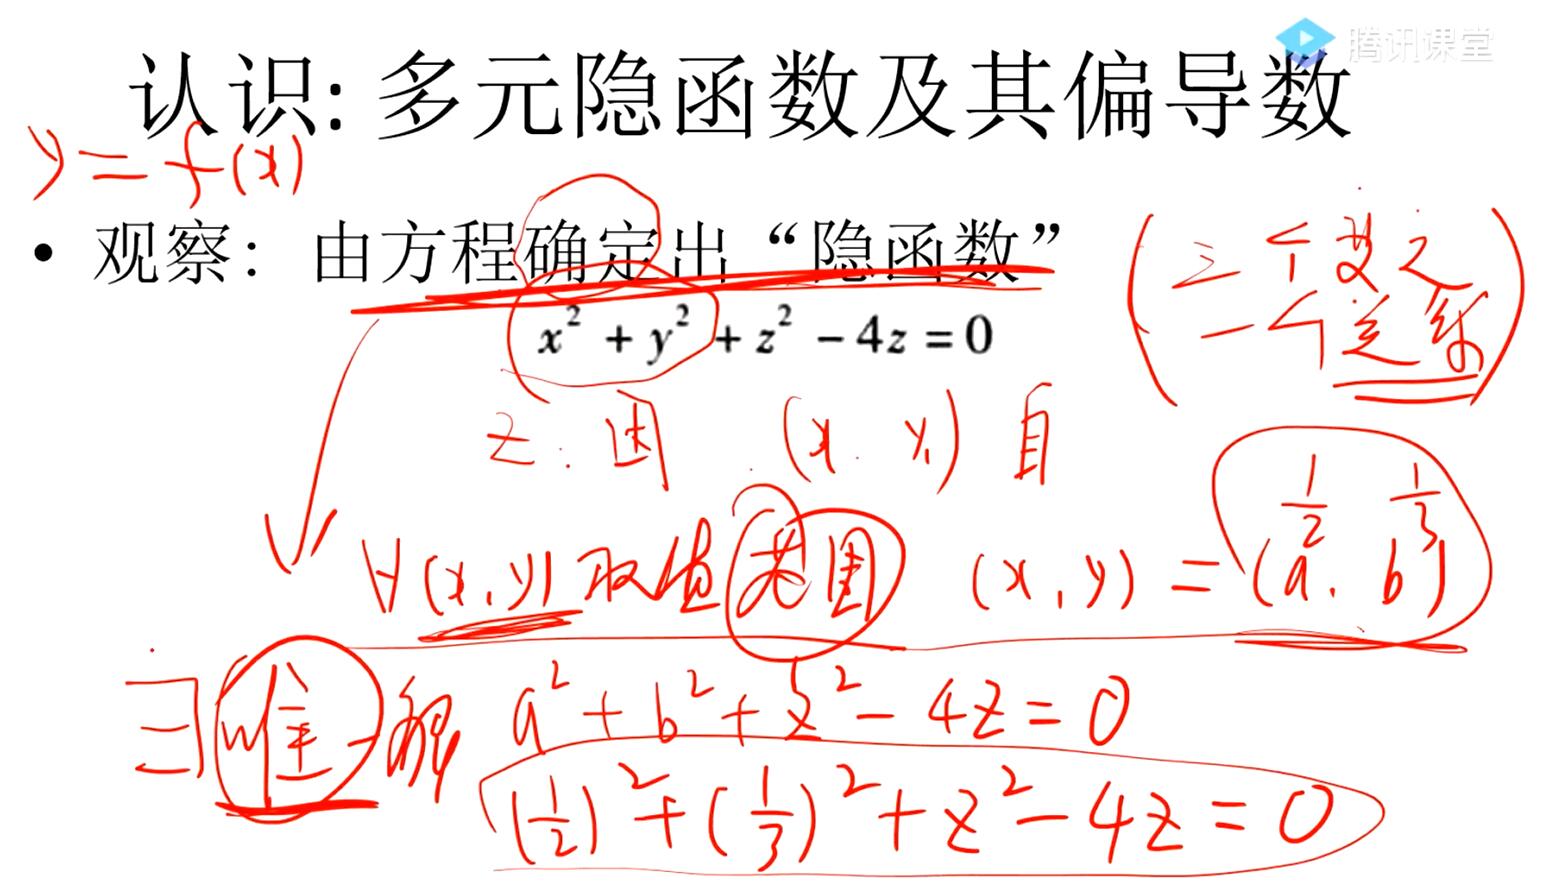 腾讯课堂
认识: 多元隐函数及其偏导数
y = f(x)
• 观察：由方程确定出“隐函数”
x² + y² + z² − 4z = 0
三个变元
一个关系
z: 因 (x, y) 自
∀(x, y) 取值范围 (x, y) = (a, b)
1/2 1/3
∃ 唯一解 a² + b² + z² − 4z = 0
(1/2)² + (1/3)² + z² − 4z = 0